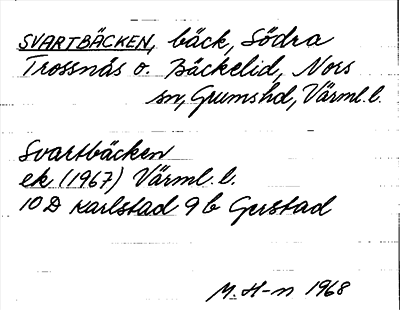 SVARTBÄCKEN, bäck, Södra
Trossnäs o. Bäckelid, Nors
sn, Grums hd, Värml. l.
Svartbäcken
ek. (1967) Värml. l.
10 D Karlstad 9 b Gustad
M. H-n 1968